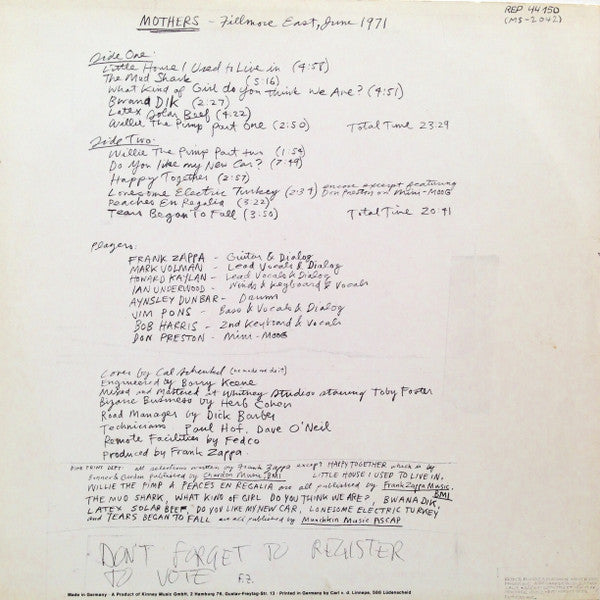 MOTHERS - Fillmore East, June 1971
REP 44 150
(MS-2042)
Side One:
Little House I Used to Live in (4:58)
The Mud Shark (5:16)
What Kind of Girl do you Think We Are? (4:51)
Bwana DIK (2:27)
Latex Solar Beef (4:22)
Willie The Pimp Part One (2:50) Total Time 23:29
Side Two:
Willie The Pimp Part two (1:54)
Do You like my New Car? (7:49)
Happy Together (2:57)
Lonesome Electric Turkey (2:34) encore excerpt featuring
Don Preston on Mini-MOOG
Peaches En Regalia (3:22)
Tears Began To Fall (3:50) Total Time 20:41
Players:
FRANK ZAPPA - Guitar & Dialog
MARK VOLMAN - Lead Vocals & Dialog
HOWARD KAYLAN - Lead Vocals & Dialog
IAN UNDERWOOD - Winds & Keyboard & Vocals
AYNSLEY DUNBAR - Drums
JIM PONS - Bass & Vocals & Dialog
BOB HARRIS - 2nd Keyboard & Vocals
DON PRESTON - Mini-MOOG
Cover by Cal Schenkel (he made me do it)
Engineered by Barry Keene
Mixed and Mastered at Whitney Studios starring Toby Foster
Bizarre Business by Herb Cohen
Road Manager by Dick Barber
Technicians Paul Hof, Dave O'Neil
Remote Facilities by Fedco
Produced by Frank Zappa
FINE PRINT DEPT: all selections written by Frank Zappa except HAPPY TOGETHER which is by
Bonner & Gordon published by Chardon Music, BMI LITTLE HOUSE I USED TO LIVE IN,
WILLIE THE PIMP & PEACES EN REGALIA are all published by Frank Zappa Music,
BMI
THE MUD SHARK, WHAT KIND OF GIRL DO YOU THINK WE ARE?, BWANA DIK,
LATEX SOLAR BEEF, DO YOU LIKE MY NEW CAR, LONESOME ELECTRIC TURKEY
and TEARS BEGAN TO FALL are all published by Munchkin Music ASCAP
DON'T FORGET TO REGISTER
TO VOTE F.Z.
Made in Germany · A Product of Kinney Music GmbH, 2 Hamburg 76, Gustav-Freytag-Str. 13 · Printed in Germany by Carl v. d. Linnepe, 588 Lüdenscheid